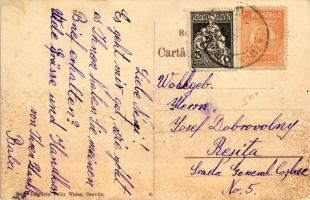 ROMANIA
Carta
Liebe Nesi!
Es geht mir gut wie geht
es Ihnen haben Sie meinen
Brief erhalten?
Viele Grüsse und Handkuss
von Ihren
Wohlgeb.
Herrn
Josef Dobrovolny
Resita
Strada General
No. 5.
Weiss, Oravita